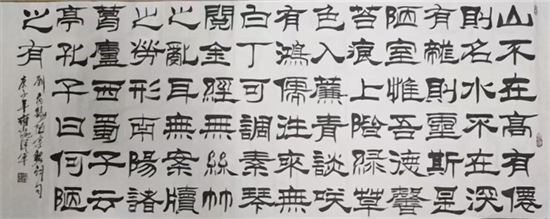 山不在高有僊
則名水不在深
有龍則靈斯是
陋室惟吾德馨
苔痕上階緑草
色入簾青談咲
有鴻儒往來無
白丁可調素琴
閱金經無絲竹
之亂耳無案牘
之勞形南陽諸
葛廬西蜀子云
亭孔子曰何陋
之有
劉禹錫陋室銘詩句
庚子年